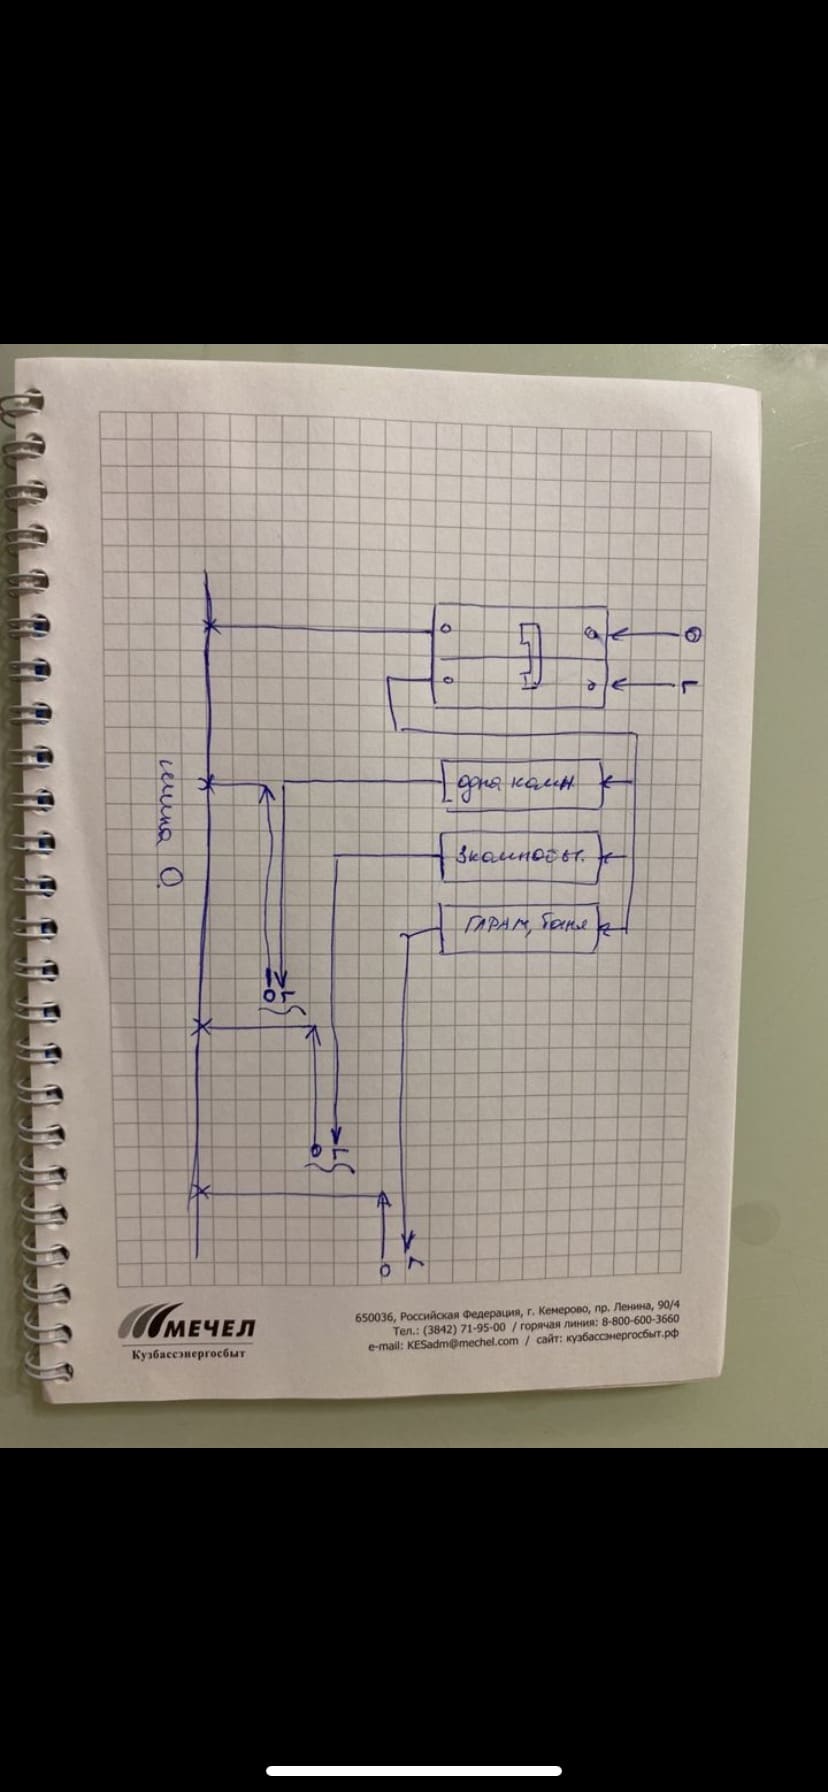 0
Г
одна комн.
3 комнаты.
ГАРАЖ, баня
шина 0
0
Г
0
Г
0
Г
МЕЧЕЛ
Кузбассэнергосбыт
650036, Российская Федерация, г. Кемерово, пр. Ленина, 90/4
Тел.: (3842) 71-95-00 / горячая линия: 8-800-600-3660
e-mail: KESadm@mechel.com / сайт: кузбассэнергосбыт.рф